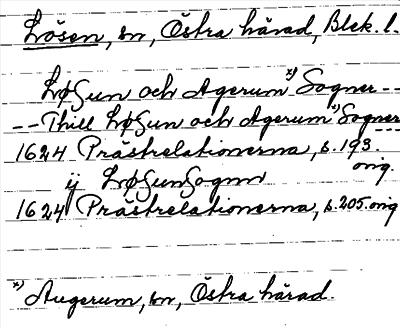 Lösen, sn, Östra härad, Blek. l.
LøSun och Agerum *) Sogner--
--Thill LøSun och Agerum *) Sogner---
1624 Prästrelationerna, s. 193. orig.
ij LøSunSognn
1624 Prästrelationerna, s. 205. orig
*) Augerum, sn, Östra härad.